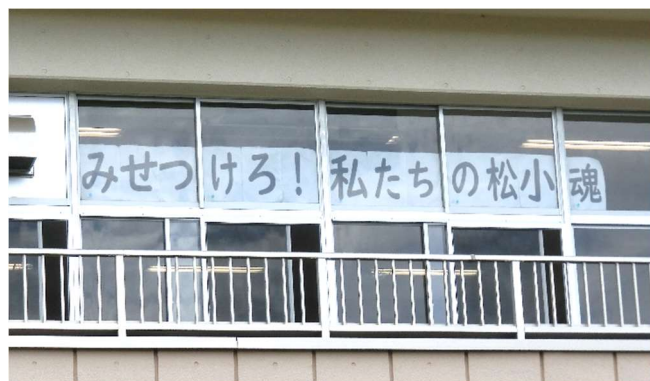 みせつけろ！私たちの松小魂